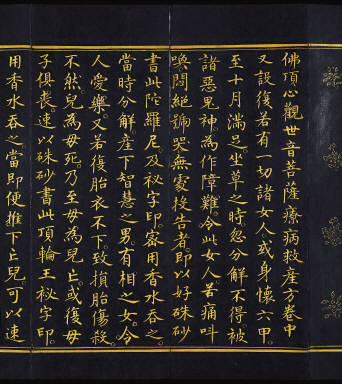 佛頂心觀世音菩薩療病救產方卷中
又設復若有一切諸女人或身懷六甲。
至十月滿足。坐草之時。忽分解不得。被
諸惡鬼神。為作障難。令此女人苦痛叫
喚。悶絕號哭。無處投告者。即以好硃砂
書此陀羅尼及祕字印。密用香水吞之。
當時分解。產下智慧之男。有相之女。令
人愛樂。又若復胎衣不下。致損胎傷殺。
不然兒為母死。乃至母為兒亡。或復母
子俱喪。速以硃砂書此頂輪王祕字印。
用香水吞之。當即便推下亡兒。可以速